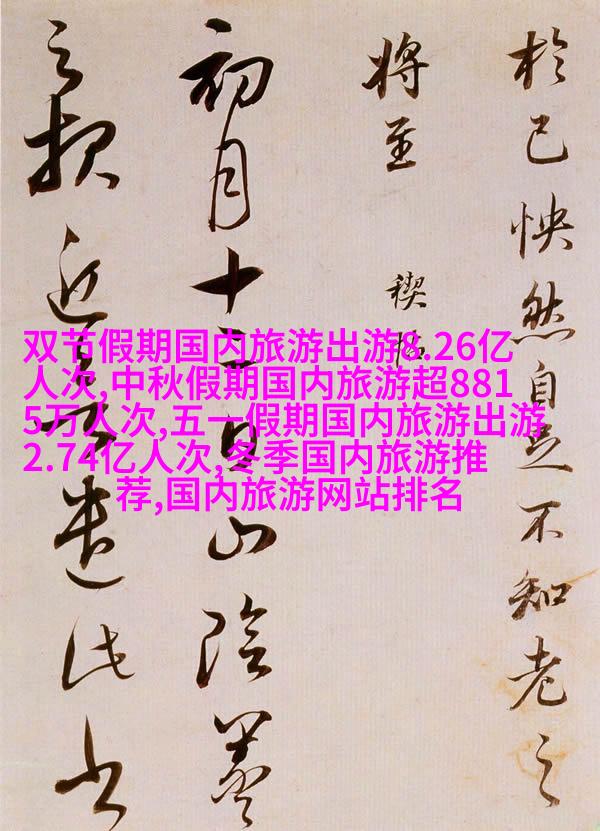 於己怏然自足不知老之
將至 禊帖
初月十二日山陰羲
之報近遣此书
双节假期国内旅游出游8.26亿
人次,中秋假期国内旅游超881
5万人次,五一假期国内旅游出游
2.74亿人次,冬季国内旅游推
荐,国内旅游网站排名